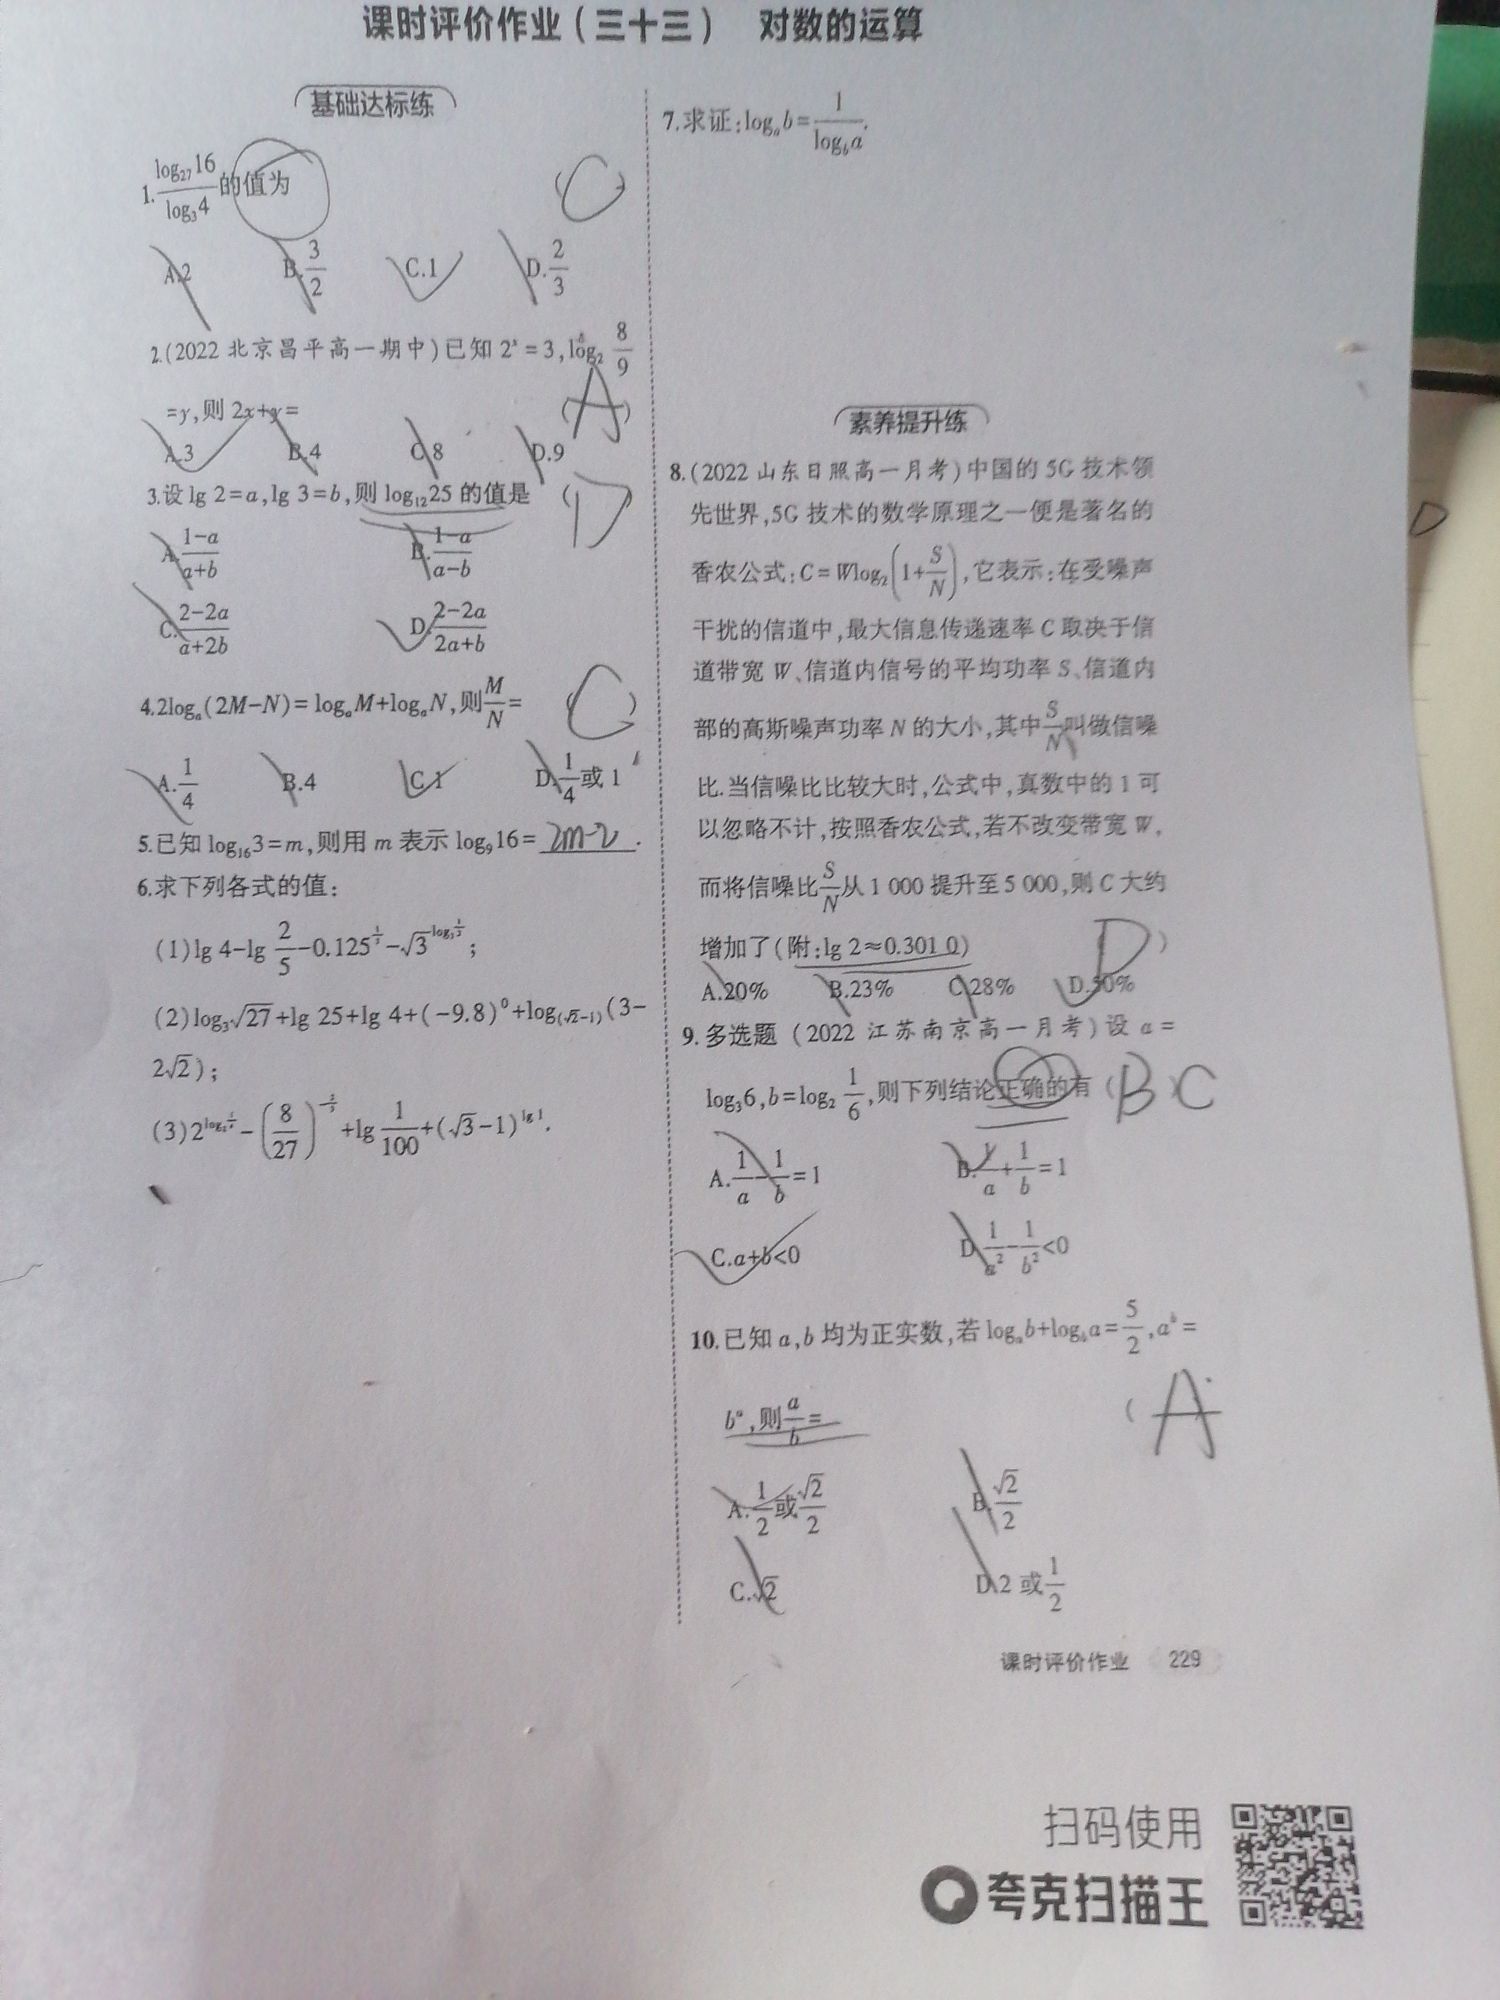 课时评价作业(三十三) 对数的运算
基础达标练
1. log₂₇16/log₃4 的值为 ( C )
A.2 B.3/2 C.1 D.2/3
2.(2022 北京昌平高一期中)已知 2ˣ=3,log₂ 8/9
=y,则 2x+y= ( A )
A.3 B.4 C.8 D.9
3.设 lg 2=a,lg 3=b,则 log₁₂25 的值是 ( D
A.(1-a)/(a+b) B.(1-a)/(a-b)
C.(2-2a)/(a+2b) D.(2-2a)/(2a+b)
4.2logₐ(2M-N)=logₐM+logₐN,则 M/N = ( C )
A.1/4 B.4 C.1 D.1/4 或 1
5.已知 log₁₆3=m,则用 m 表示 log₉16= 2m-2 .
6.求下列各式的值:
(1)lg 4-lg 2/5 -0.125^(1/3) -√3^
(2)log₃√27+lg 25+lg 4+(-9.8)⁰+log(√2-1)(3-
2√2);
(3)2^ -(8/27)^ +lg 1/100 +(√3-1)^(lg 1).
7.求证:logₐb=1/log_b a.
素养提升练
8.(2022 山东日照高一月考)中国的 5G 技术领
先世界,5G 技术的数学原理之一便是著名的
香农公式:C=Wlog₂(1+S/N),它表示:在受噪声
干扰的信道中,最大信息传递速率 C 取决于信
道带宽 W、信道内信号的平均功率 S、信道内
部的高斯噪声功率 N 的大小,其中 S/N 叫做信噪
比.当信噪比比较大时,公式中,真数中的 1 可
以忽略不计,按照香农公式,若不改变带宽 W,
而将信噪比 S/N 从 1 000 提升至 5 000,则 C 大约
增加了(附:lg 2≈0.301 0) D )
A.20% B.23% C.28% D.50%
9.多选题 (2022 江苏南京高一月考)设 a=
log₃6,b=log₂ 1/6,则下列结论正确的有 ( B )C
A.1/a-1/b=1 B.1/a+1/b=1
C.a+b<0 D.1/a²-1/b²<0
10.已知 a,b 均为正实数,若 logₐb+log_b a=5/2,aᵇ=
bᵃ,则 a/b = ( A
A.1/2 或 √2/2 B.√2/2
C.√2 D.2 或 1/2
课时评价作业 229
扫码使用
夸克扫描王